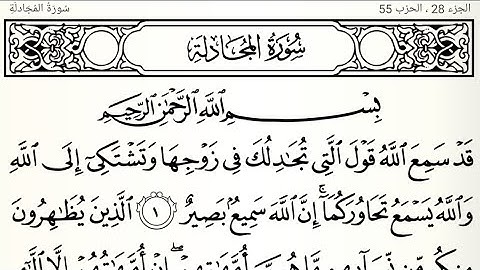 الجزء 28 ، الحزب 55
سُورَةُ المُجَادلَةِ
سُورَةُ المُجَادلَةِ
بِسْمِ اللَّهِ الرَّحْمَٰنِ الرَّحِيمِ
قَدْ سَمِعَ اللَّهُ قَوْلَ الَّتِي تُجَٰدِلُكَ فِي زَوْجِهَا وَتَشْتَكِيٓ إِلَى اللَّهِ
وَاللَّهُ يَسْمَعُ تَحَاوُرَكُمَآ ۚ إِنَّ اللَّهَ سَمِيعُۢ بَصِيرٌ ١ الَّذِينَ يُظَٰهِرُونَ
مِنكُم مِّن نِّسَآئِهِم مَّا هُنَّ أُمَّهَٰتِهِمْ ۖ إِنْ أُمَّهَٰتُهُمْ إِلَّا الَّٰٓـِٔي